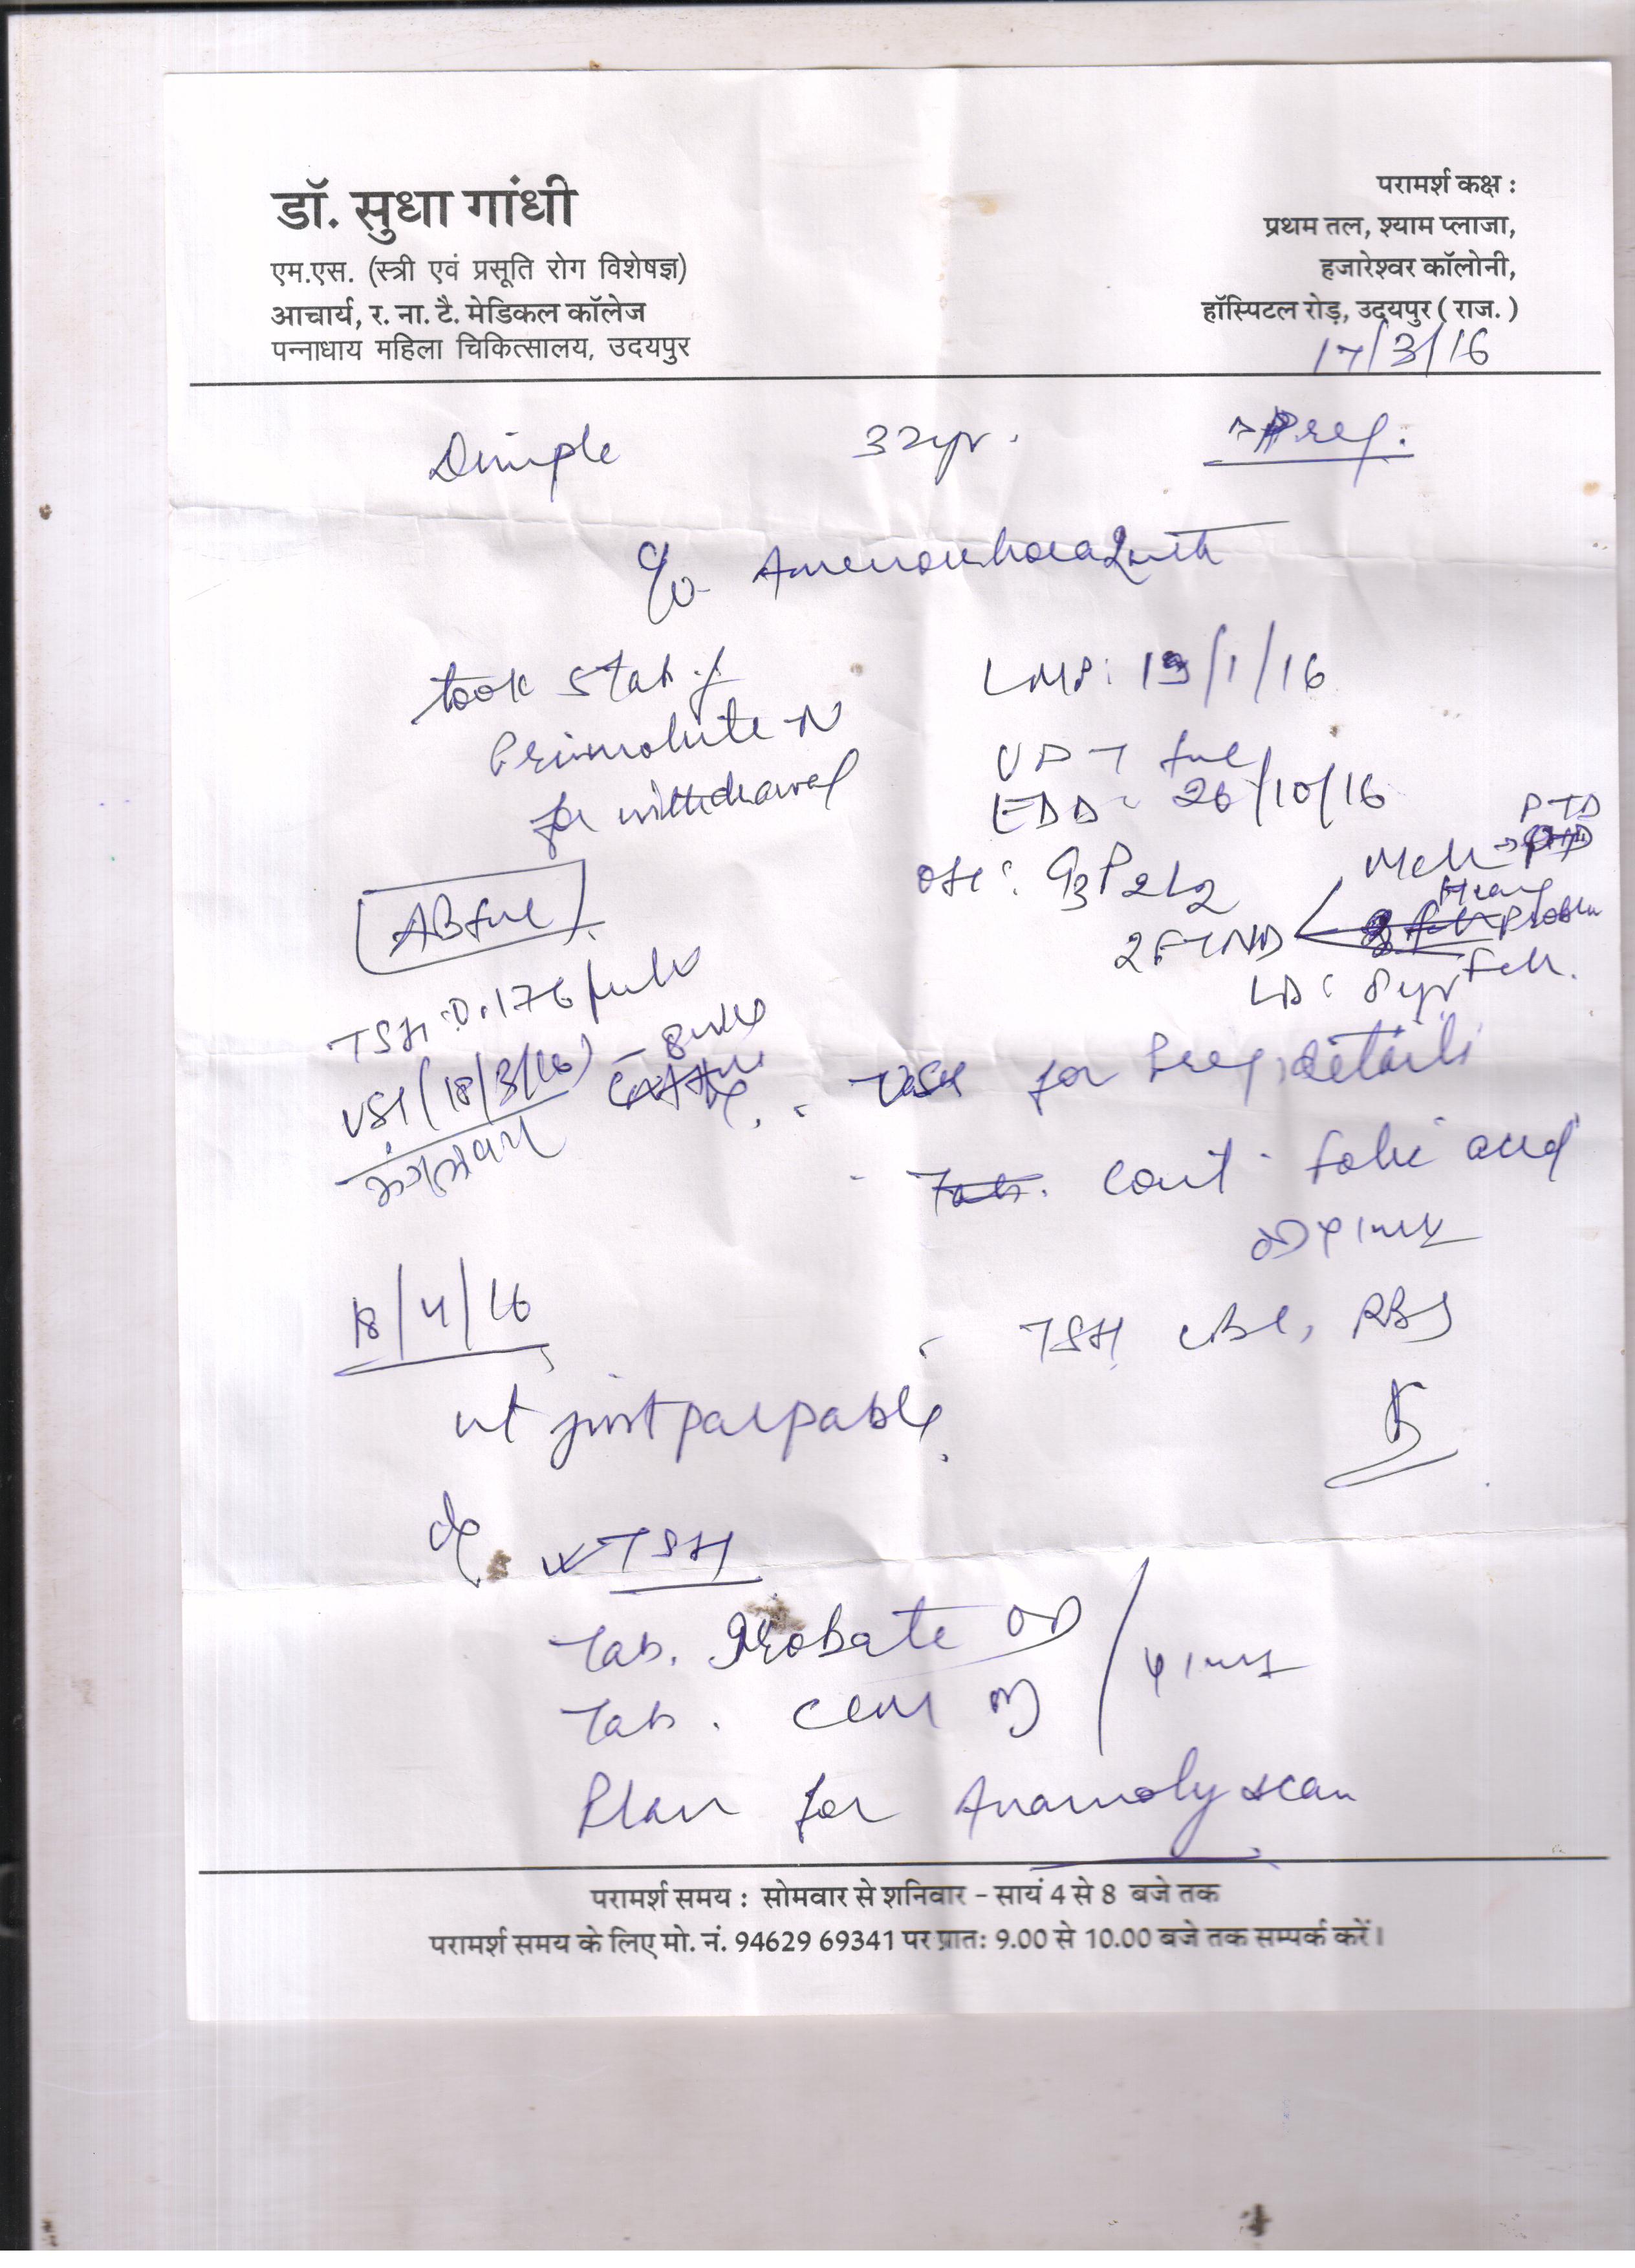 डॉ. सुधा गांधी
एम.एस. (स्त्री एवं प्रसूति रोग विशेषज्ञ)
आचार्य, र. ना. टै. मेडिकल कॉलेज
पन्नाधाय महिला चिकित्सालय, उदयपुर
परामर्श कक्ष :
प्रथम तल, श्याम प्लाजा,
हजारेश्वर कॉलोनी,
हॉस्पिटल रोड़, उदयपुर ( राज. )
17/3/16
Dimple 32yr. Preg.
c/o Amenorrhoea 2mth
took 5 tab of
Primolute-N
for withdrawal
LMP: 19/1/16
EDD: 26/10/16
PTD
OH: G3P2L2
Mch
Heart
Problem
2FTND
LD: 8yr Fch.
TSH: 0.176
UST (18/3/16) - 8wks
for Preg. details
Tab. Cont. folic acid
OD
18/4/16
TSH, CBC, RBS
ut just palpable
TSH
Tab. OD
Tab. CCM OD
Plan for Anamoly scan
परामर्श समय : सोमवार से शनिवार - सायं 4 से 8 बजे तक
परामर्श समय के लिए मो. नं. 94629 69341 पर प्रातः 9.00 से 10.00 बजे तक सम्पर्क करें।